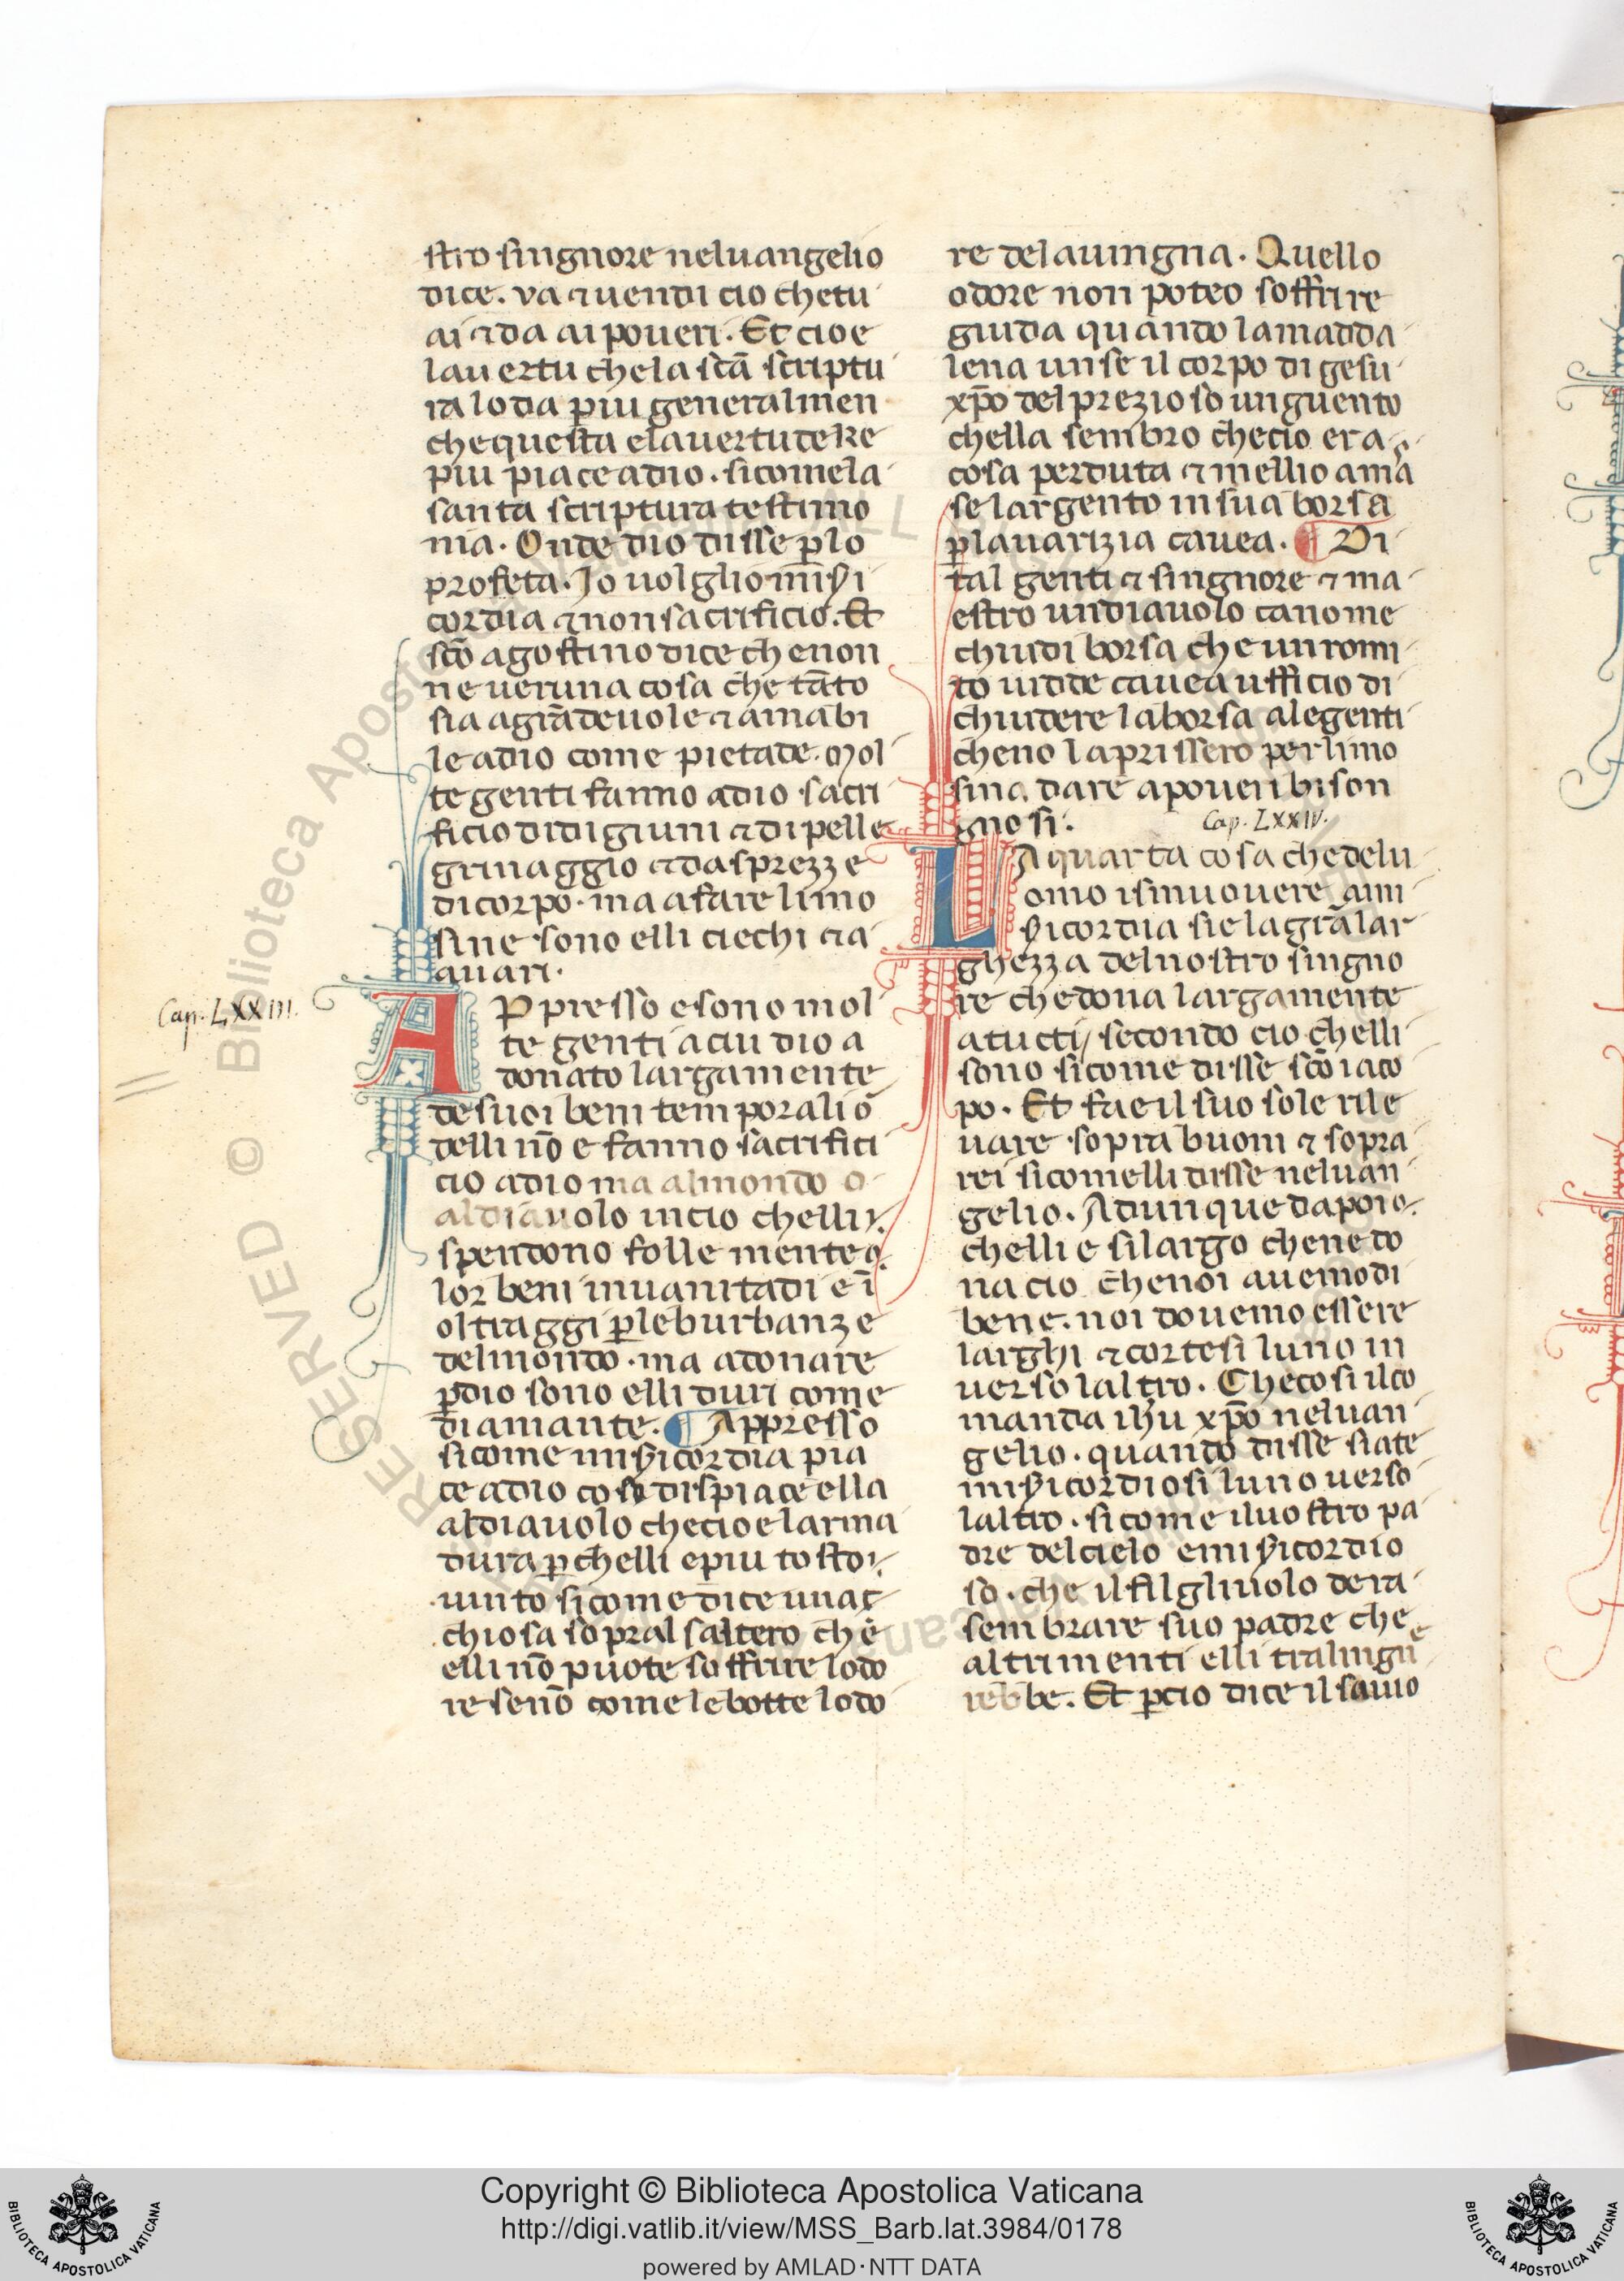 stro singnore neluangelio
dice. va ⁊ uendi cio chetu
ai ⁊ da ai poueri. Et cio e
lauertu chela scā scriptu
ra loda piu generalmen
chequesta elauertude ke
piu piace adio. sicomela
santa scriptura testimo
nia. Onde dio disse ꝑlo
profeta. Jo uolglio mīsi
cordia ⁊ non sacrificio. Et
scō agostino dice chenon
ne ueruna cosa che tāto
sia agrādeuole ⁊ amabi
le adio come pietade. Mol
te genti fanno adio sacri
ficio di digiuni ⁊ di pelle
grinaggio ⁊ dasprezze
di corpo. ma afare limo
sine sono elli ciechi ⁊ a
auari.
Cap. LXXIII.
APpresso e sono mol
te genti acui dio a
donato largamente
de suoi beni temporali ō
delli nō e fanno sacrifici
cio adio ma almondo o
aldiauolo incio chelli
spendono follemente
lor beni inuanitadi e ī
oltraggi ꝑleburbanze
delmondo. ma adonare
ꝑdio sono elli duri come
diamante. ¶ Appresso
sicome misicordia pia
ce adio cosi dispiace ella
aldiauolo checio e larma
dura ꝑchelli e piu tosto
uinto sicome dice una
chiosa sopral saltero che
elli nō puote soffrire lodo
re senō come lebotte lodo
re delauingna. Quello
odore non poteo soffrire
giuda quando lamadda
lena unse il corpo di gesu
xp̄o del prezioso unguento
chella sembro checio era
cosa perduta ⁊ mellio ama
se largento in sua borsa
ꝑlauarizia cauea. ¶ Di
tal genti e singnore ⁊ ma
estro undiauolo canome
chiudi borsa che unromi
to uidde cauea ufficio di
chiudere laborsa alegenti
cheno laprissero per limo
sina dare apoueri bison
gnosi.
Cap. LXXIV.
LA quarta cosa chedelu
omo ismuouere ami
sicordia sie lagrā lar
ghezza delnostro singno
re chedona largamente
atucti/ secondo cio chelli
sono sicome disse scō iaco
po. Et fae il suo sole rile
uare sopra buoni ⁊ sopra
rei sicomelli disse neluan
gelio. Adunque dapoio
chelli e silargo chenedo
na cio chenoi auemo di
bene. noi douemo essere
larghi ⁊ cortesi luno in
uerso laltro. Checosi ilco
manda ihu xp̄o neluan
gelio. quando disse siate
misicordiosi luno uerso
laltro. sicome iluostro pa
dre delcielo e misicordio
so. che il filgliuolo dera
sembrare suo padre che
altrimenti elli tralingn
rebbe. Et ꝑcio dice il sauio
Copyright © Biblioteca Apostolica Vaticana
http://digi.vatlib.it/view/MSS_Barb.lat.3984/0178
powered by AMLAD·NTT DATA
BIBLIOTECA APOSTOLICA VATICANA
BIBLIOTECA APOSTOLICA VATICANA